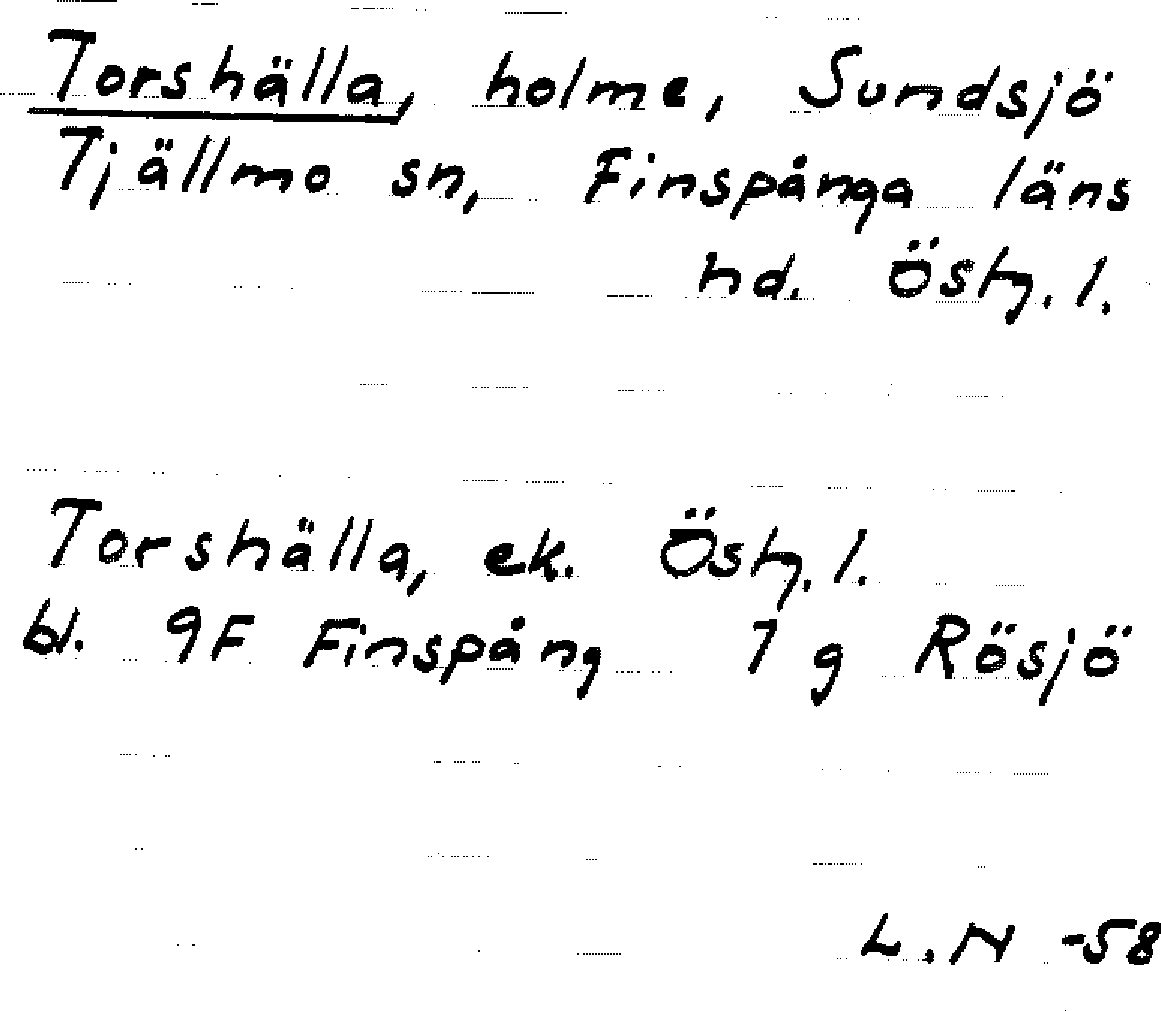 Torshälla, holme, Sundsjö
Tjällmo sn, Finspånga läns
hd. Östg. l.
Torshälla, ek. Östg. l.
bl. 9F Finspång 7 g Rösjö
L.N -58